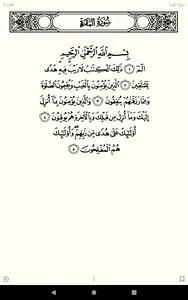 سُورَةُ البَقَرَةِ
بِسْمِ اللَّهِ الرَّحْمَٰنِ الرَّحِيمِ
الٓمٓ ١ ذَٰلِكَ الْكِتَٰبُ لَا رَيْبَ فِيهِ هُدًى
لِّلْمُتَّقِينَ ٢ الَّذِينَ يُؤْمِنُونَ بِالْغَيْبِ وَيُقِيمُونَ الصَّلَوٰةَ
وَمِمَّا رَزَقْنَٰهُمْ يُنفِقُونَ ٣ وَالَّذِينَ يُؤْمِنُونَ بِمَا أُنزِلَ
إِلَيْكَ وَمَا أُنزِلَ مِن قَبْلِكَ وَبِالْآخِرَةِ هُمْ يُوقِنُونَ ٤
أُولَٰئِكَ عَلَىٰ هُدًى مِّن رَّبِّهِمْ وَأُولَٰئِكَ
هُمُ الْمُفْلِحُونَ ٥